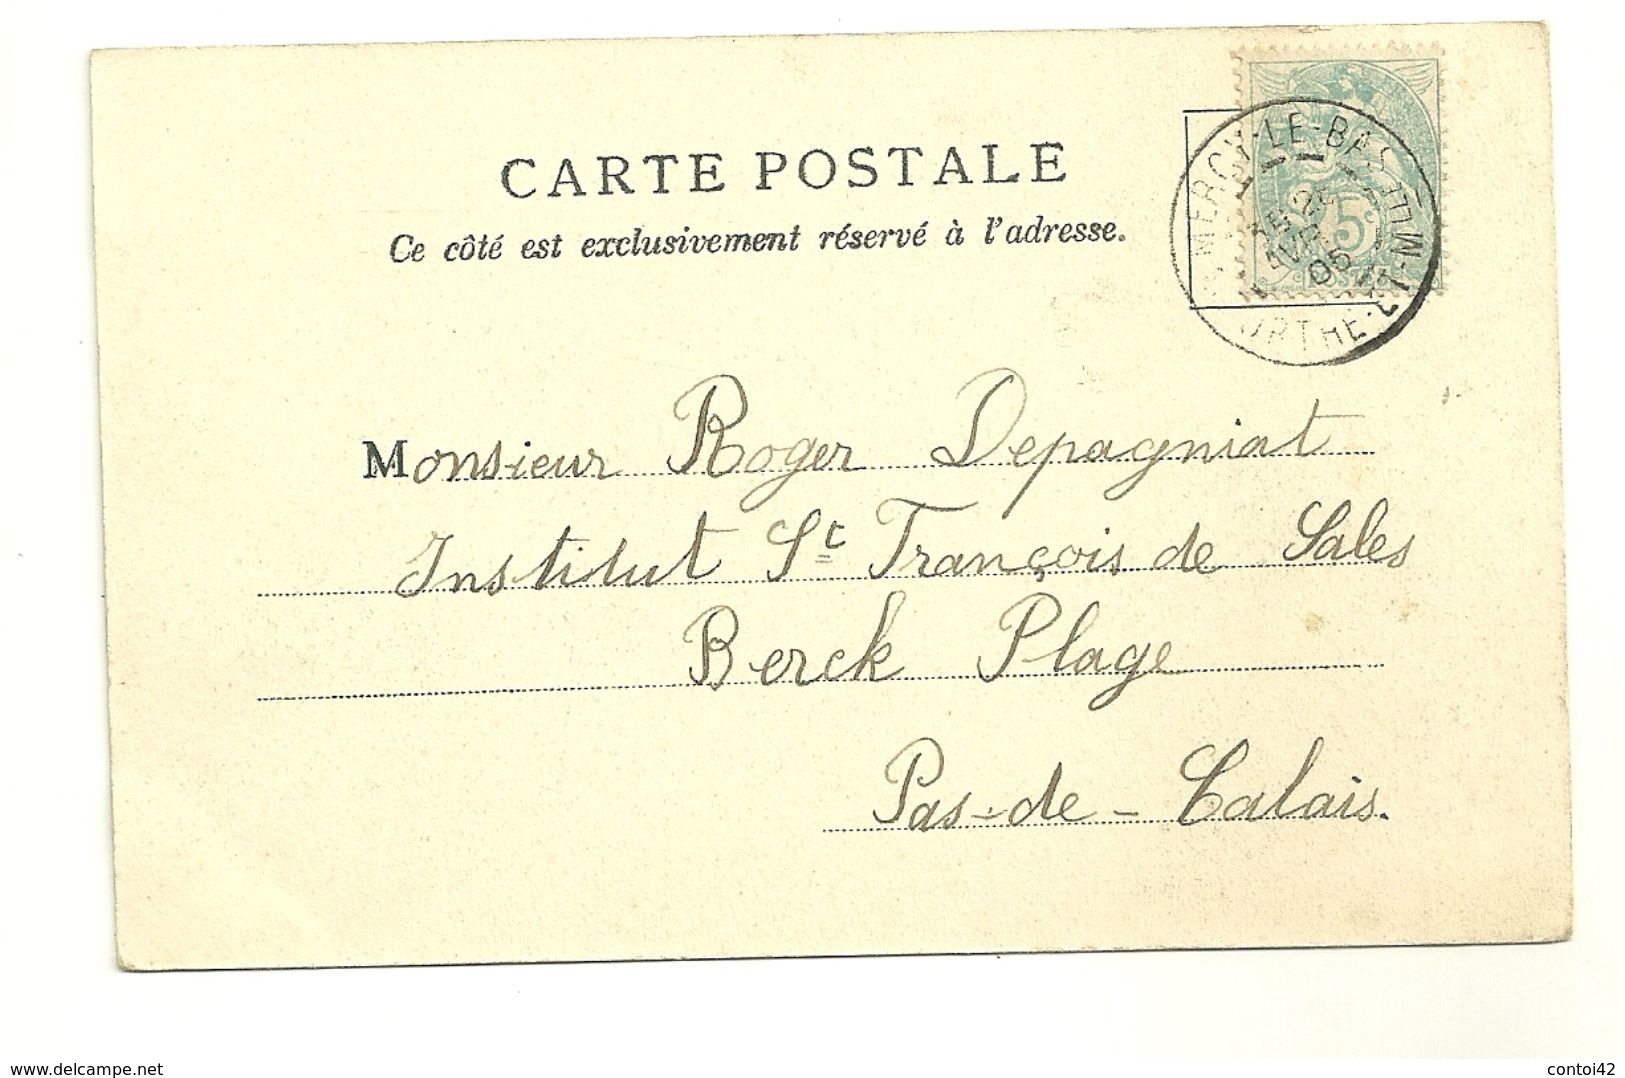 CARTE POSTALE
Ce côté est exclusivement réservé à l'adresse.
MERCY-LE-BAS
05
5c
Monsieur Roger Depagniat
Institut St François de Sales
Berck Plage
Pas-de-Calais.
www.delcampe.net
contoi42